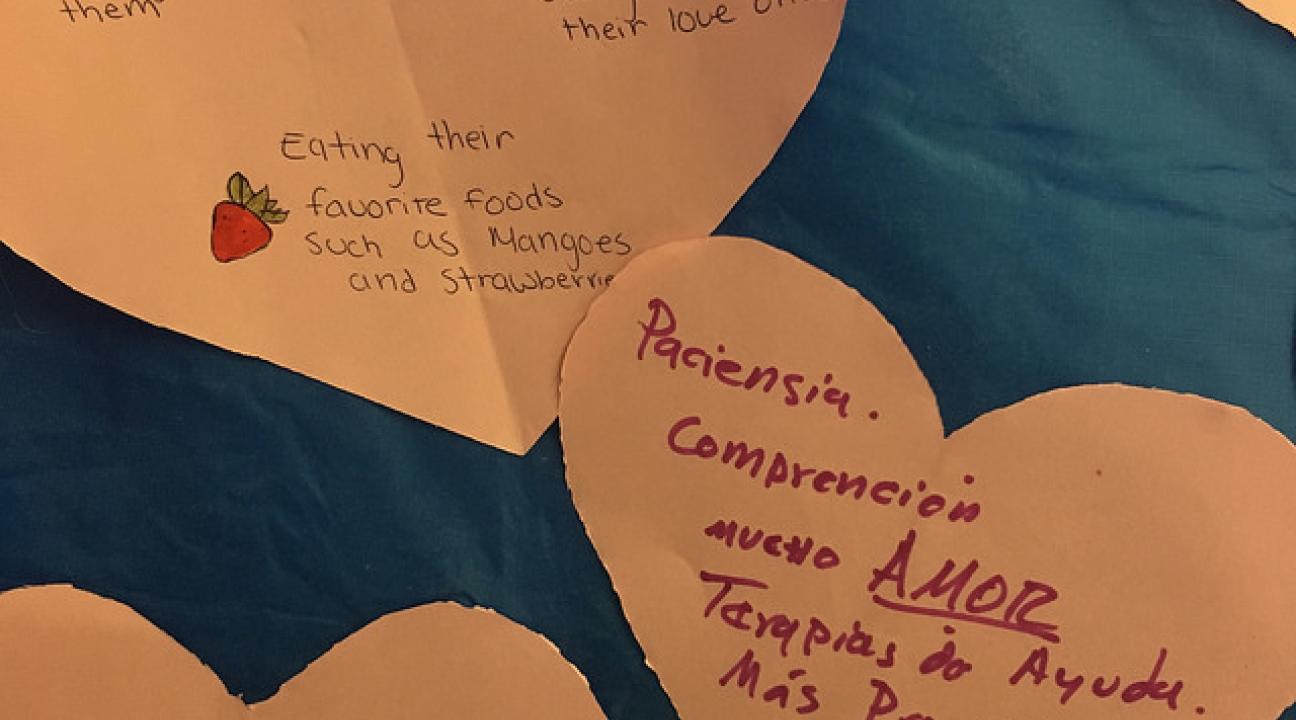 them
their love
Eating their
favorite foods
such as Mangoes
and Strawberrie
Paciensia.
Comprención
MUCHO AMOR
Terapias do Ayuda.
Más